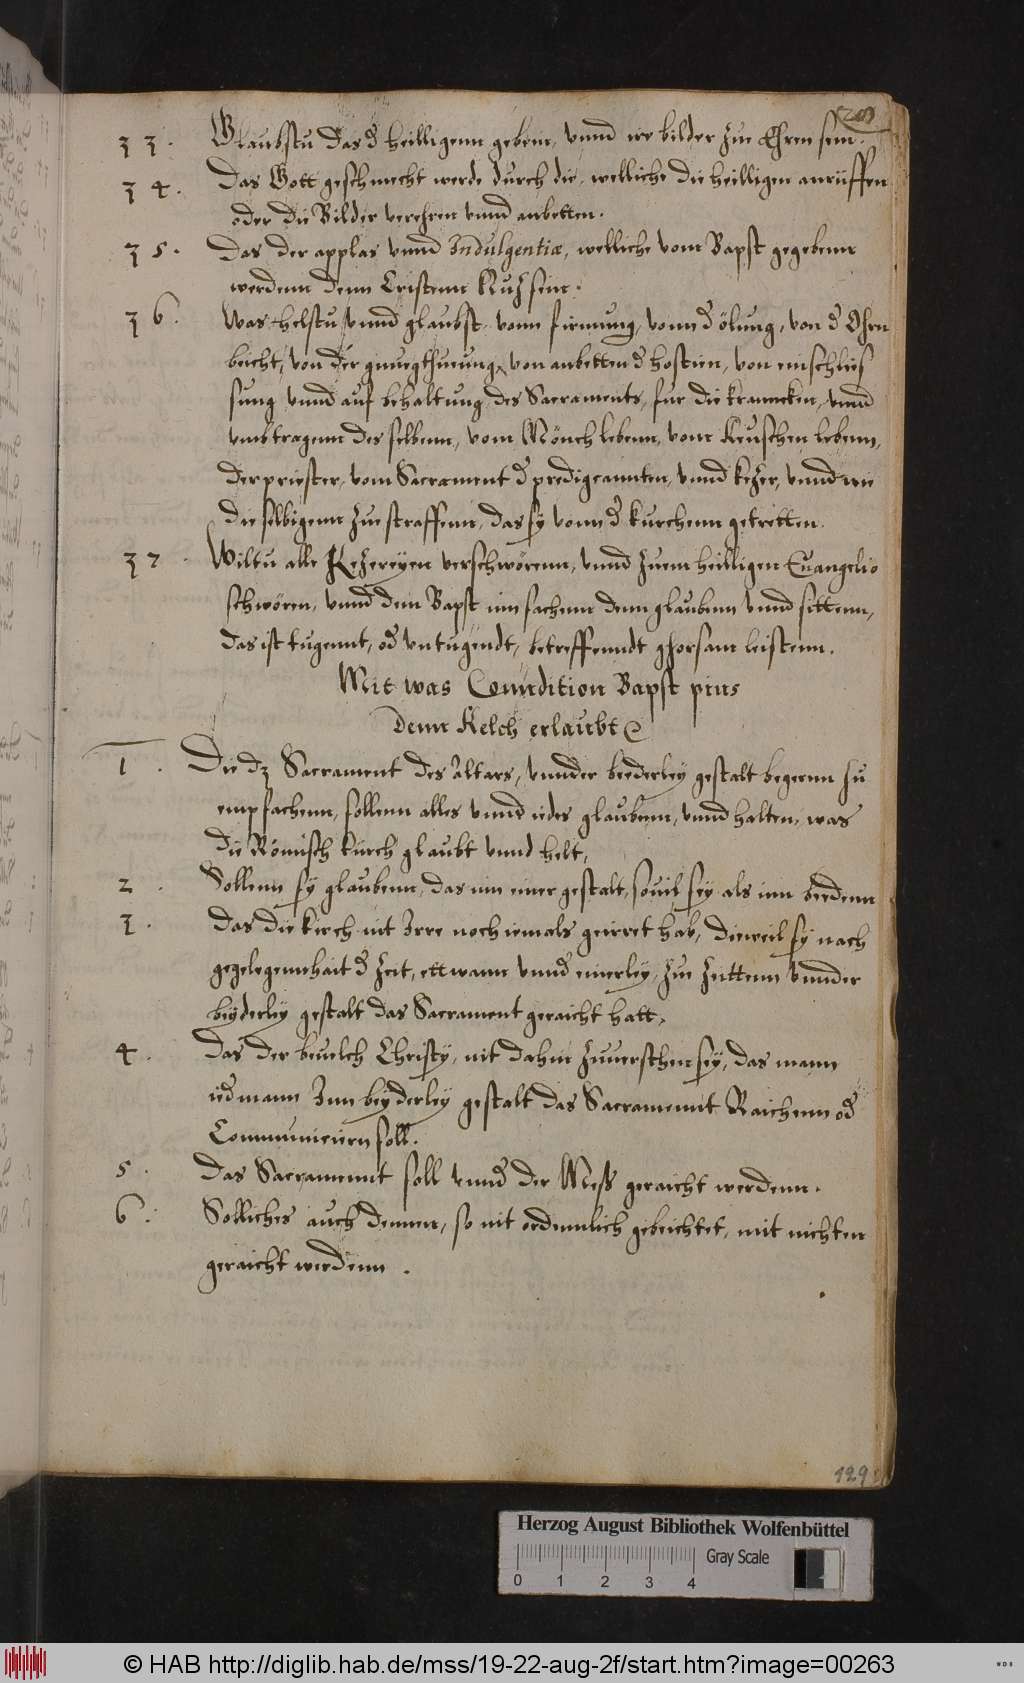 33. Glaubstu das d heilligenn gebein, vnnd ire bilder zue Ehren sein.
34. Das Gott geschmecht werde durch die, welliche die heilligen anrüffen
oder die Bilder verehren vnnd anbetten.
35. Das der applas vnnd Indulgentiæ, welliche vom Bapst gegebenn
werdenn denn Cristenn Nutz sein.
36. Was helstu vnnd glaubst vonn firmung, vonn d ölung, von d Ohrn
beicht, von der gnuegthueung, von anbetten d hostien, von einschlies
sung vnnd auf behaltung des Sacraments, fur die krancken, vnnd
vmbtragenn desselbenn, vom Mönch lebenn, vom Keuschen lebenn,
der priester, vom Sacrament d predigcannten, vnnd kezer, vnnd wie
dieselbigenn zue straffenn, das sy vonn d kurchenn getretten.
37. Wiltu alle Kezereyen verschwörenn, vnnd zuem heilligen Euangelio
schwören, vnnd dem Bapst inn sachenn denn glaubenn vnnd sittenn,
das ist tugennt, od vntugendt, betreffenndt ghorsam leistenn.
Mit was Conndition Bapst pius
denn Kelch erlaubt
1. Die dz Sacrament des Altars, vnnder beederley gestalt begernn zu
empfachenn, sollenn alles vnnd iedes glaubenn, vnnd halten, was
die Römisch kurch glaubt vnnd helt,
2. Sollenn sy glaubenn, das inn einer gestalt, souil sey als inn beedenn
3. Das die kirch nit Irre noch iemals geirret hab, dieweil sy nach
gegelegennhait d zeit, ettwann vnnd einerley, zue zeittenn vnnder
beyderley gestalt das Sacrament geraicht hatt,
4. Das der beuelch Christy, nit dahin zuuersthen sey, das mann
iedmann Inn beyderley gestalt das Sacramennt Raichenn od
Communicirn soll.
5. Das Sacramennt soll vnnd der Mess geraicht werdenn.
6. Solliches auch dennen, so nit ordennlich gebeichtet, mit nichten
geraicht werdenn.
129
Herzog August Bibliothek Wolfenbüttel
Gray Scale
0 1 2 3 4
© HAB http://diglib.hab.de/mss/19-22-aug-2f/start.htm?image=00263